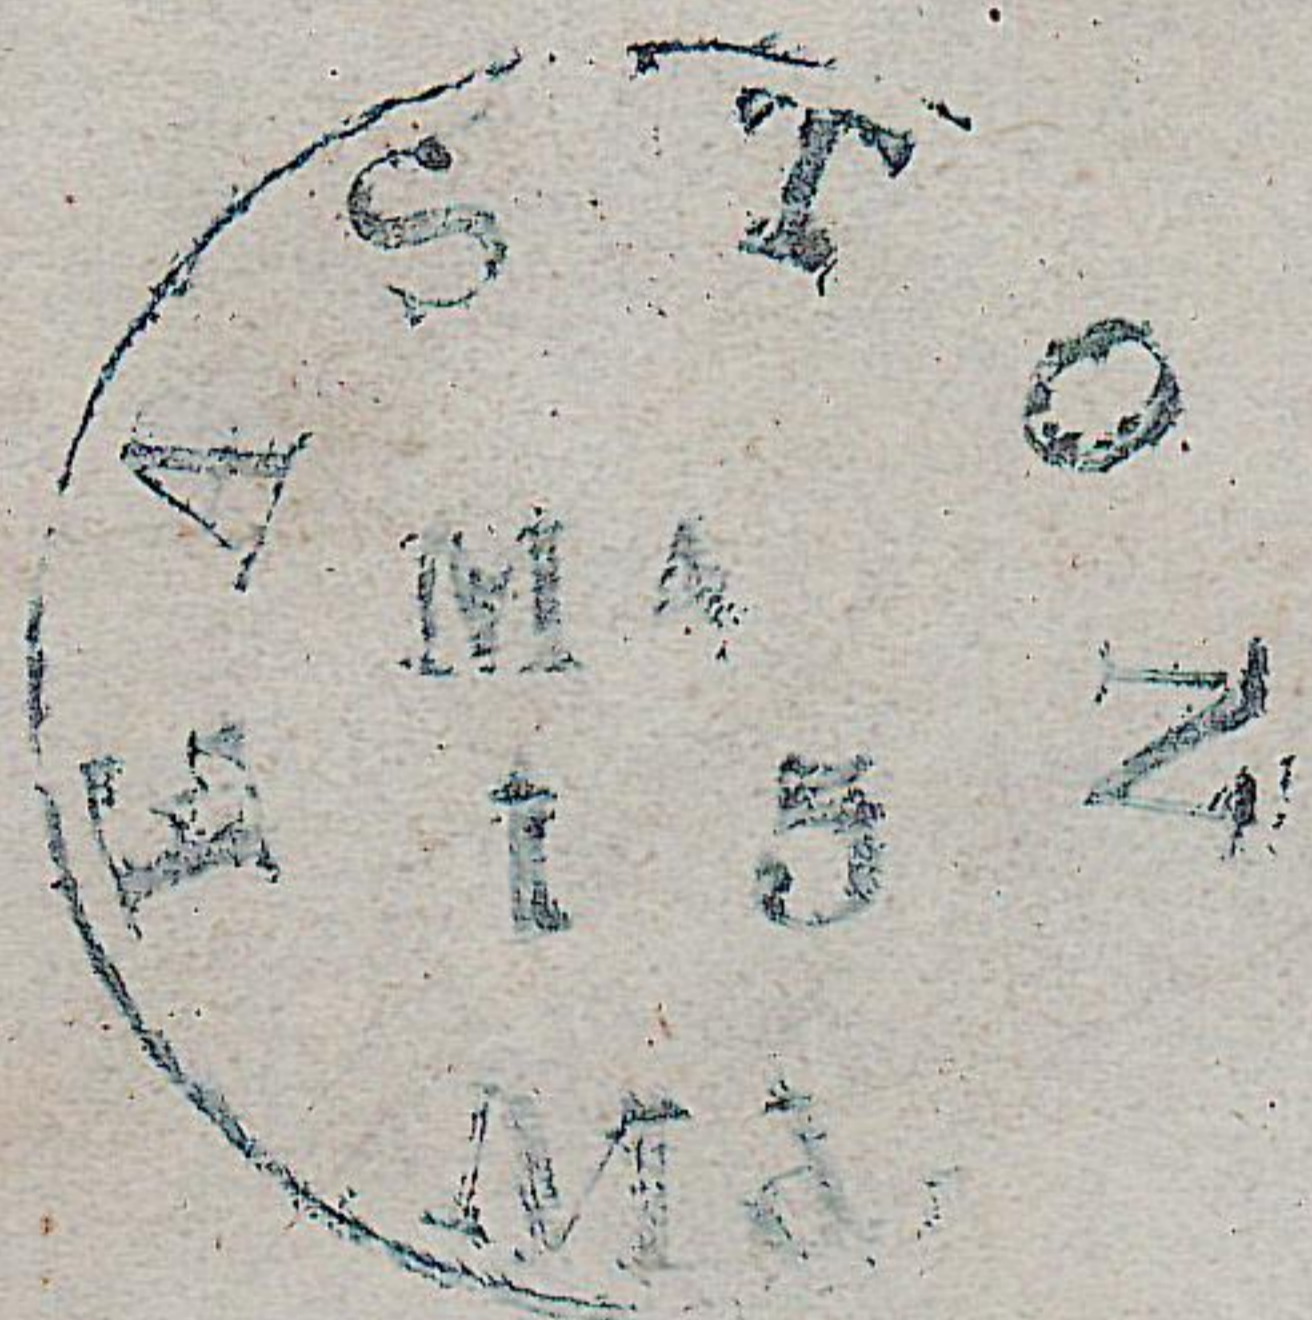 EASTON
MA
15
Md.